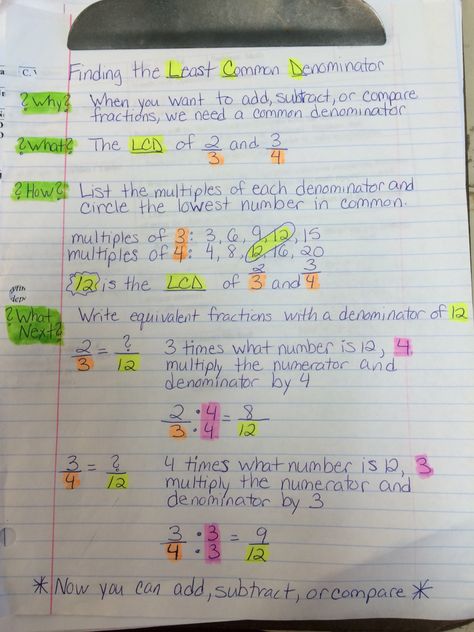 Finding the Least Common Denominator
?Why? When you want to add, subtract, or compare
fractions, we need a common denominator
?What? The LCD of 2/3 and 3/4
?How? List the multiples of each denominator and
circle the lowest number in common.
multiples of 3: 3, 6, 9, 12, 15
multiples of 4: 4, 8, 12, 16, 20
12 is the LCD of 2/3 and 3/4
?What Next? Write equivalent fractions with a denominator of 12
2/3 = ?/12 3 times what number is 12, 4
multiply the numerator and
denominator by 4
2/3 · 4/4 = 8/12
3/4 = ?/12 4 times what number is 12, 3
multiply the numerator and
denominator by 3
3/4 · 3/3 = 9/12
* Now you can add, subtract, or compare *